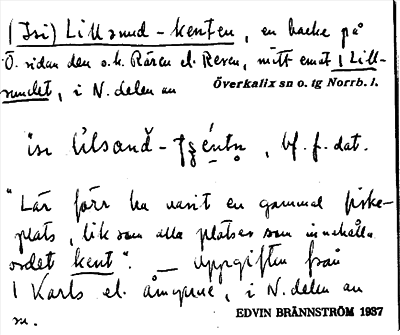 (Isi) Lillsund-kenten, en backe på
Ö. sidan den o.k. Rären el. Reven, mitt emot 1 Lill-
sundet, i N. delen av Överkalix sn o. tg Norrb. l.
lilsand - , bf. f. dat.
"Lär förr ha varit en gammal fiske-
plats, lik som alla platser som innehålla
ordet kent". — Uppgiften från
1 Karls el. , i N. delen av
sn. EDVIN BRÄNNSTRÖM 1937